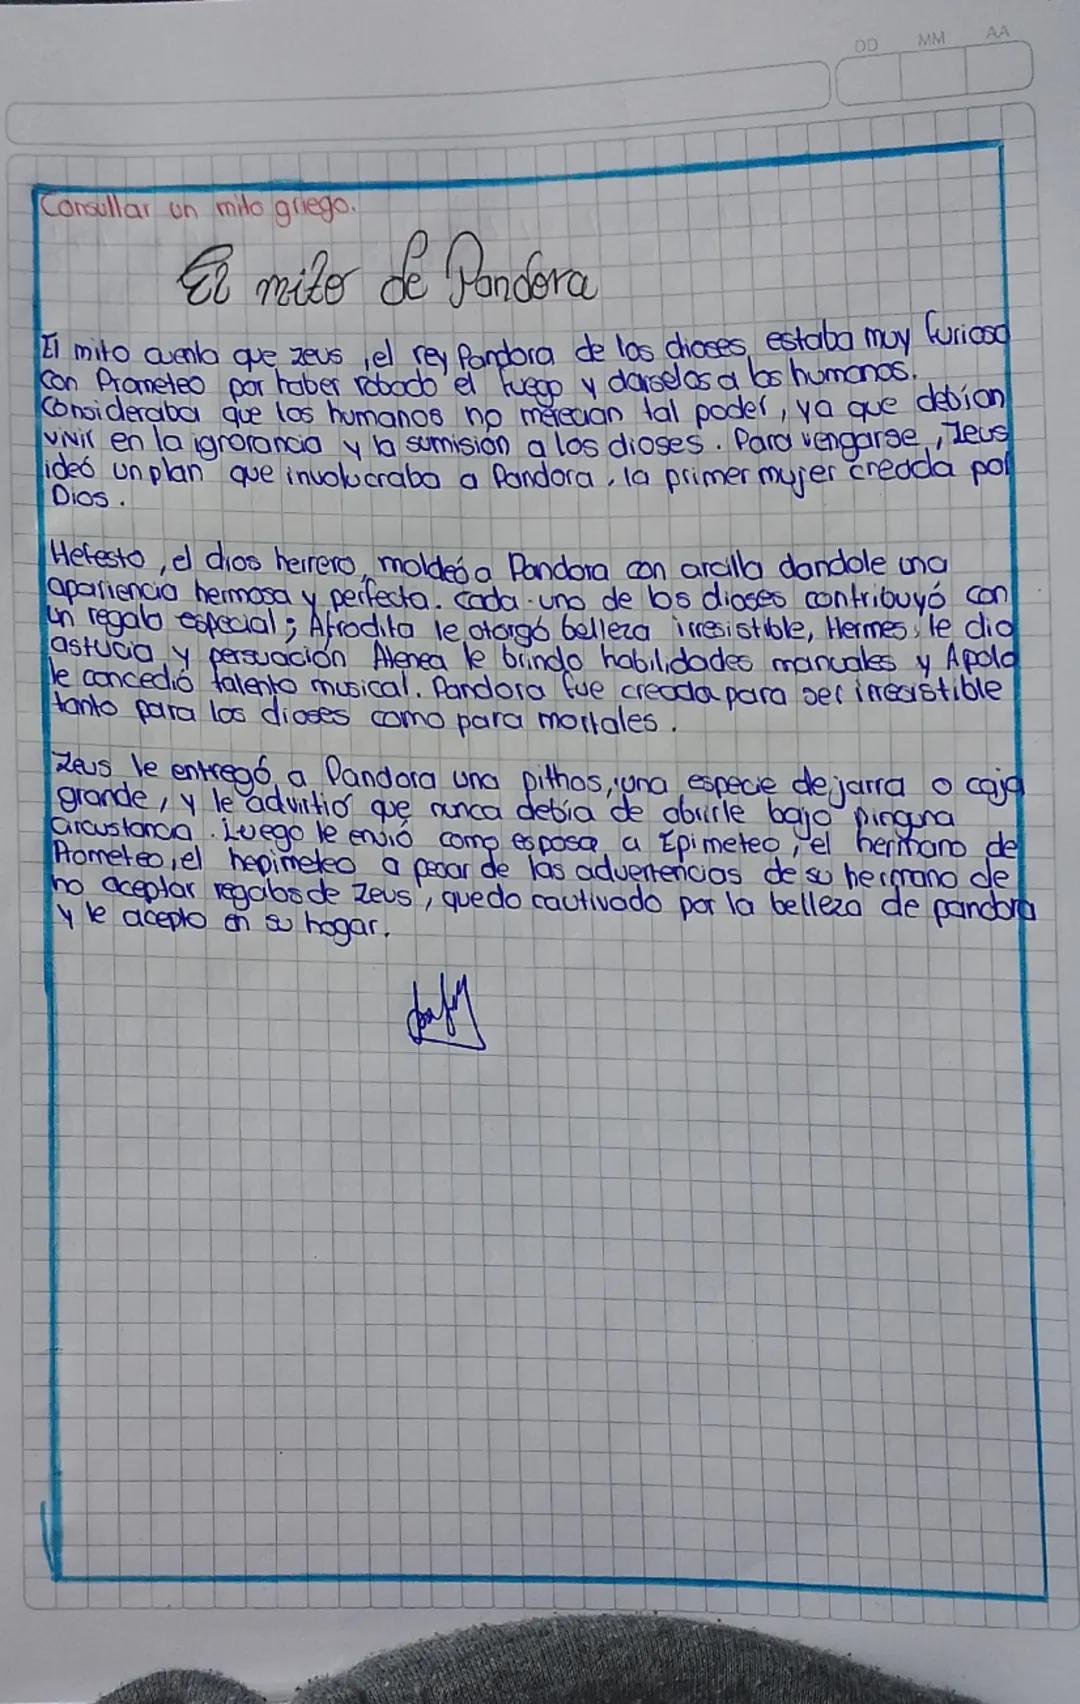 DD MM AA
Consultar un mito griego.
El mito de Pandora
El mito cuenta que zeus, el rey Pandora de los dioses estaba muy furioso
con Prometeo por haber robado el fuego y darselos a los humanos.
Consideraba que los humanos no merecian tal poder, ya que debian
vivir en la ignorancia y la sumisión a los dioses. Para vengarse, Zeus
ideó un plan que involucraba a Pandora, la primer mujer creada por
Dios.
Hefesto, el dios herrero, moldeó a Pandora con arcilla dandole una
apariencia hermosa y perfecta. Cada uno de los dioses contribuyó con
un regalo especial; Afrodita le otorgó belleza irresistible, Hermes, le dio
astucia y persuación Atenea le brindo habilidades manuales y Apolo
le concedió talento musical. Pandora fue creada para ser irresistible
tanto para los dioses como para mortales.
Zeus le entregó a Pandora una pithos, una especie de jarra o caja
grande, y le advirtió que nunca debía de abrirle bajo ninguna
circustancia. Luego le envió como esposa a Epimeteo, el hermano de
Prometeo, el hepimeteo a pesar de las advertencias de su hermano de
no aceptar regalos de Zeus, quedo cautivado por la belleza de pandora
y le acepto en su hogar.